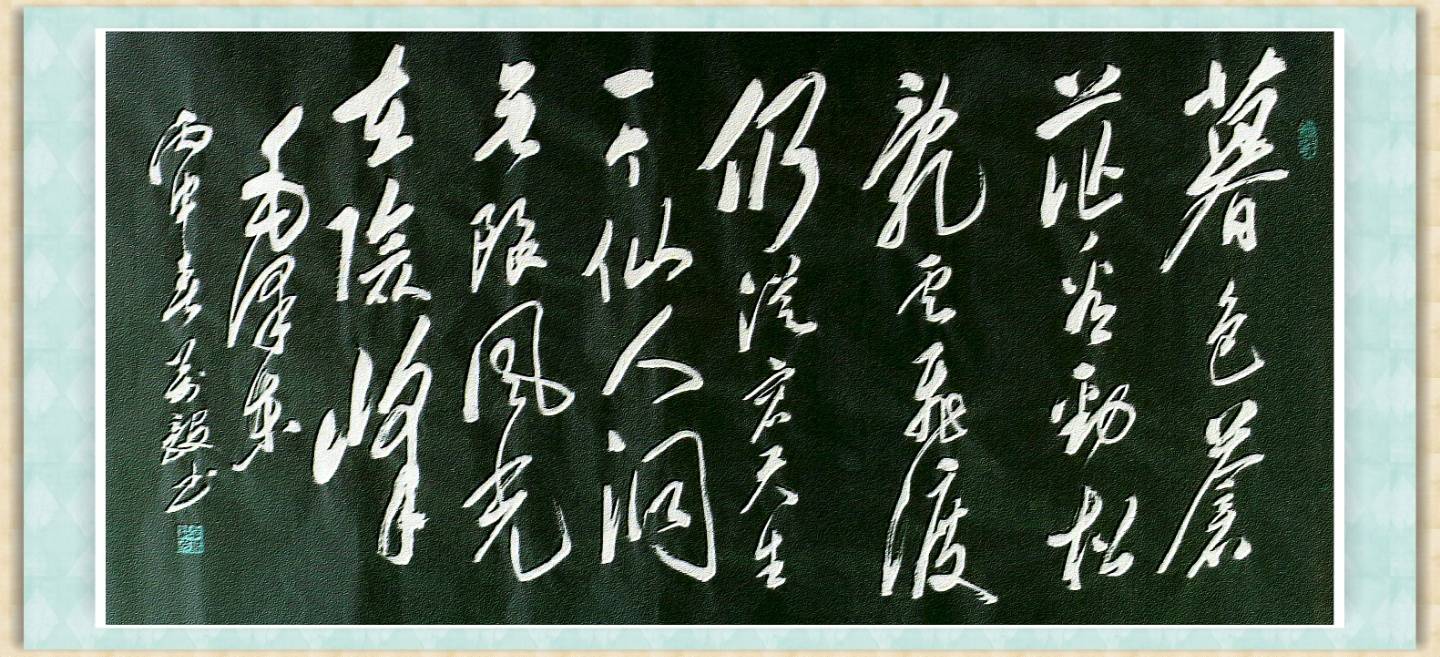 暮色蒼
茫看勁松
亂云飛渡
仍從容天生
一个仙人洞
无限风光
在險峰
毛泽东
丙申春 毅书